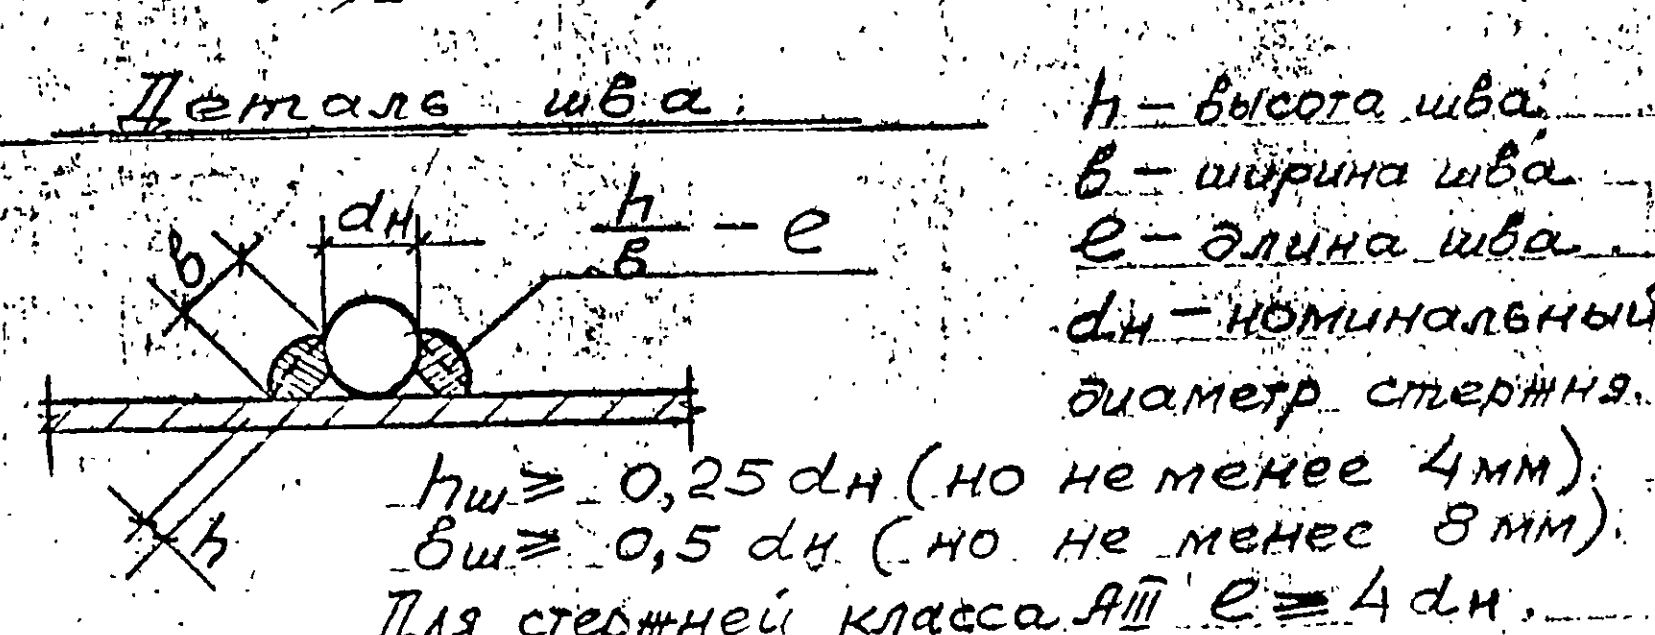 Деталь шва.
h - высота шва.
в - ширина шва.
ℓ - длина шва.
dн - номинальный
диаметр стержня.
в
dн
h/в - ℓ
h
hш ≥ 0,25 dн (но не менее 4 мм).
вш ≥ 0,5 dн (но не менее 8 мм).
Для стержней класса АIII ℓ ≥ 4 dн.